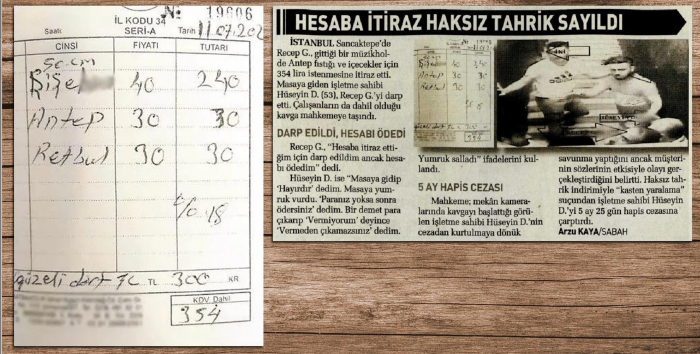 İL KODU 34
No: 19606
Saati:
SERİ-A
Tarih 11.07.202
CİNSİ FİYATI TUTARI
50 cm
40 240
Antep 30 30
Retbul 30 30
% 18
TL 300 KR
KDV Dahil
354
HESABA İTİRAZ HAKSIZ TAHRİK SAYILDI
İSTANBUL Sancaktepe'de
Recep G., gittiği bir müzikhol-
de Antep fıstığı ve içecekler için
354 lira istenmesine itiraz etti.
Masaya giden işletme sahibi
Hüseyin D. (53), Recep G.'yi darp
etti. Çalışanların da dahil olduğu
kavga mahkemeye taşındı.
DARP EDİLDİ, HESABI ÖDEDİ
Recep G., "Hesaba itiraz etti-
ğim için darp edildim ancak hesa-
bı ödedim" dedi.
Hüseyin D. ise "Masaya gidip
'Hayırdır' dedim. Masaya yum-
ruk vurdu. 'Paranız yoksa sonra
ödersiniz' dedim. Bir demet para
çıkarıp 'Vermiyorum' deyince
'Vermeden çıkamazsınız' dedim.
Yumruk salladı" ifadelerini kul-
landı.
5 AY HAPİS CEZASI
Mahkeme; mekân kamera-
larında kavgayı başlattığı görü-
len işletme sahibi Hüseyin D.'nin
cezadan kurtulmaya dönük
savunma yaptığını ancak müşteri-
nin sözlerinin etkisiyle olayı ger-
çekleştirdiğini belirtti. Haksız tah-
rik indirimiyle "kasten yaralama"
suçundan işletme sahibi Hüseyin
D.'yi 5 ay 25 gün hapis cezasına
çarptırdı.
Arzu KAYA/SABAH